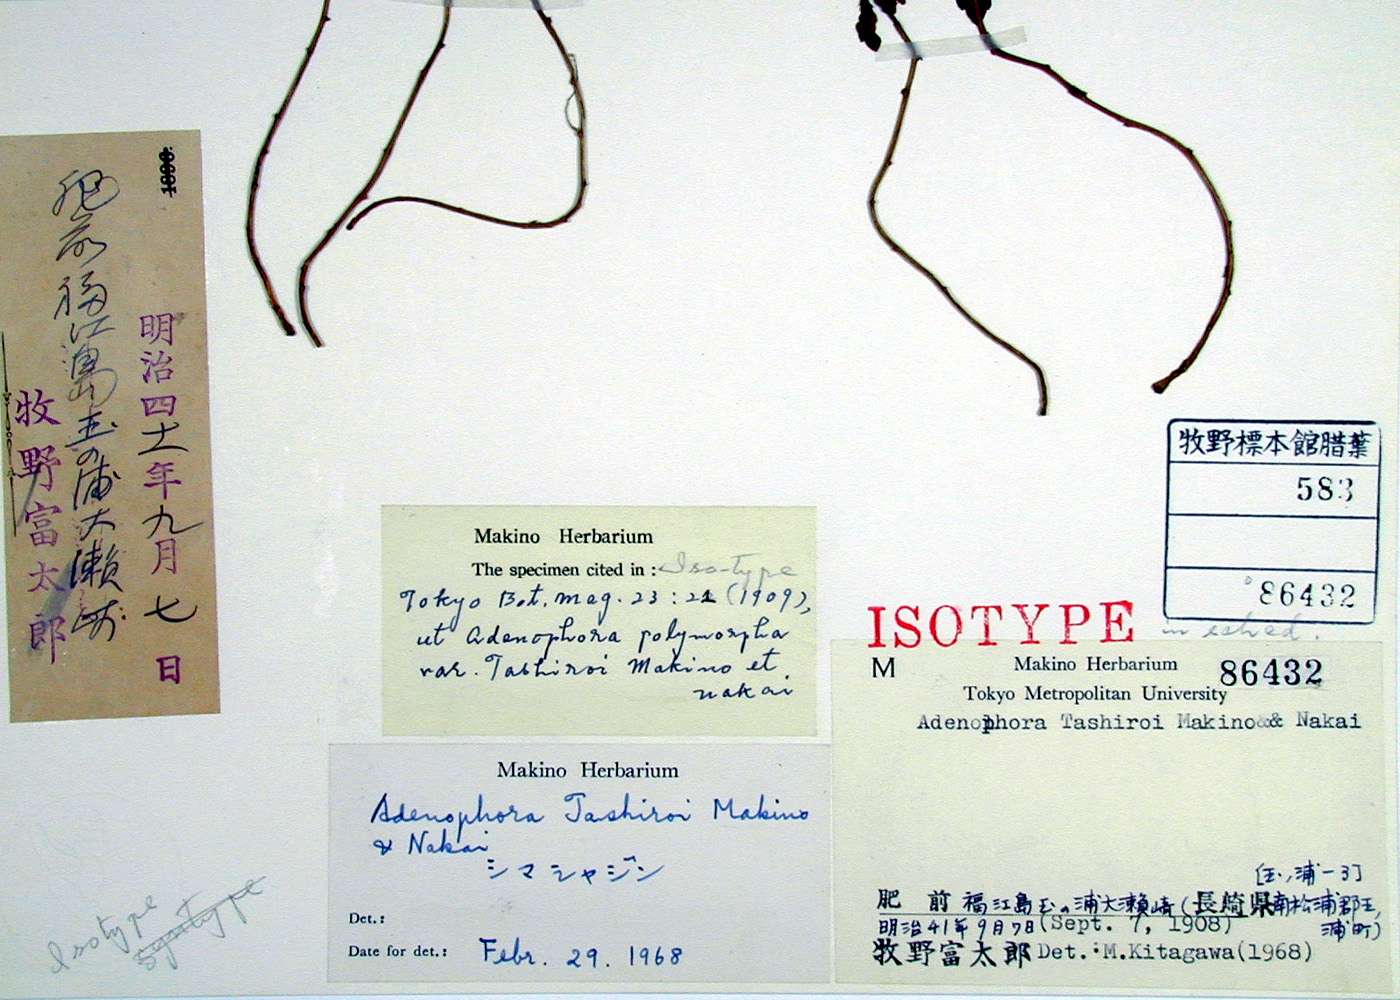 明治四十一年九月七日
肥前福江島玉の浦大瀬崎
牧野富太郎
牧野標本館腊葉
583
86432
Makino Herbarium
The specimen cited in : Iso-type
Tokyo Bot. Mag. 23 : 21 (1909),
ut Adenophora polymorpha
var. Tashiroi Makino et
Nakai
ISOTYPE
M
Makino Herbarium
86432
Tokyo Metropolitan University
Adenophora Tashiroi Makino & Nakai
[玉ノ浦-3]
肥前 福江島玉の浦大瀬崎 (長崎県南松浦郡玉,
浦町)
明治41年9月7日 (Sept. 7, 1908)
牧野富太郎 Det.: M.Kitagawa(1968)
Makino Herbarium
Adenophora Tashiroi Makino
& Nakai
シマシャジン
Det.:
Date for det.: Febr. 29. 1968
Isotype
Syntype